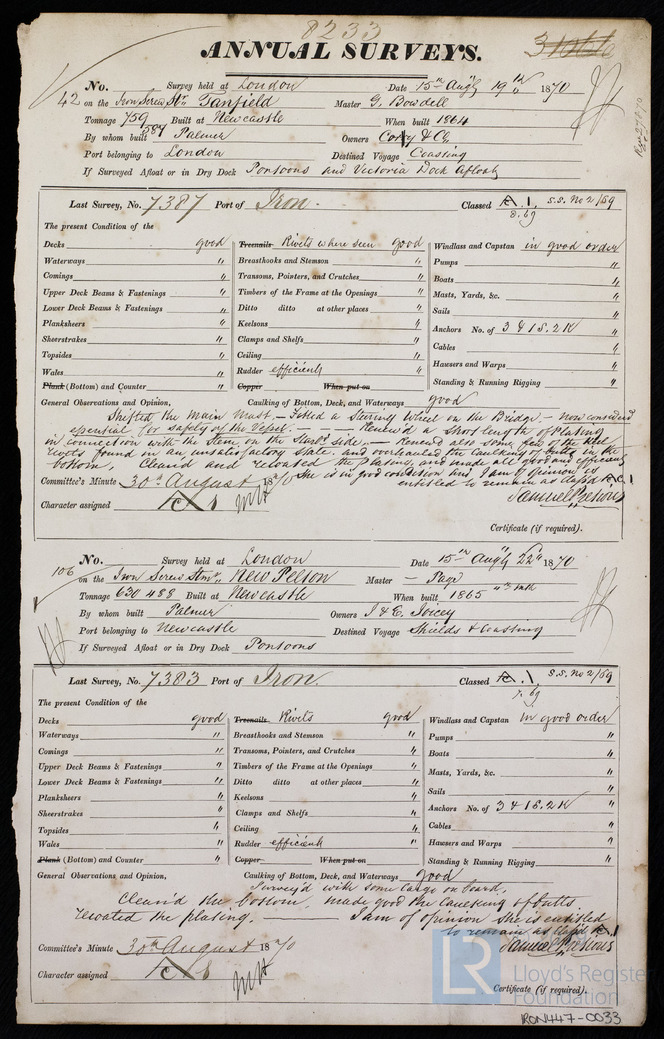 8233
ANNUAL SURVEYS.
No. Survey held at London Date 15th Augt 19th 1870
42 on the Iron Screw Str Tanfield Master G. Bowdell
Tonnage 759 Built at Newcastle When built 1864
By whom built Palmer Owners Cory & Co
Port belonging to London Destined Voyage Coasting
If Surveyed Afloat or in Dry Dock Pontoons and Victoria Dock afloat
Last Survey, No. 7387 Port of Iron. Classed A.1. S.S. No 2/69
8.69
The present Condition of the
Decks good Treenails Rivets where seen good Windlass and Capstan in good order
Waterways " Breasthooks and Stemson " Pumps "
Comings " Transoms, Pointers, and Crutches " Boats "
Upper Deck Beams & Fastenings " Timbers of the Frame at the Openings " Masts, Yards, &c. "
Lower Deck Beams & Fastenings " Ditto ditto at other places " Sails "
Planksheers " Keelsons " Anchors No. of 3 & 1 S. 2 K "
Sheerstrakes " Clamps and Shelfs " Cables "
Topsides " Ceiling " Hawsers and Warps "
Wales " Rudder efficient " Standing & Running Rigging "
Plank (Bottom) and Counter " Copper When put on
General Observations and Opinion, Caulking of Bottom, Deck, and Waterways good
Shifted the Main Mast. - Fitted a Steering Wheel on the Bridge. - now considered
essential for safety of the Vessel. - Renew'd a short length of Plating
in connection with the Stem, on the Starbd side. - Renewed also some few of the keel
rivets found in an unsatisfactory state. and overhauled the caulking of butts in the
bottom, Clean'd and recoated the plating, and made all good and efficient
She is in good condition and I am of opinion is
entitled to remain as Class'd A.1
Committee's Minute 30th August 1870
Samuel Pretious
Character assigned A 1
Certificate (if required).
No. Survey held at London Date 15th Augt 22d 1870
106 on the Iron Screw Stmr New Pelton Master - Page
Tonnage 630 488 Built at Newcastle When built 1865 4th mth
By whom built Palmer Owners J & E. Joicey
Port belonging to Newcastle Destined Voyage Shields & Coasting
If Surveyed Afloat or in Dry Dock Pontoons
Last Survey, No. 7383 Port of Iron. Classed A.1 S.S. No 2/69
The present Condition of the
Decks good Treenails Rivets good Windlass and Capstan in good order
Waterways " Breasthooks and Stemson " Pumps "
Comings " Transoms, Pointers, and Crutches " Boats "
Upper Deck Beams & Fastenings " Timbers of the Frame at the Openings " Masts, Yards, &c. "
Lower Deck Beams & Fastenings " Ditto ditto at other places " Sails "
Planksheers " Keelsons " Anchors No. of 3 & 1 S. 2 K "
Sheerstrakes " Clamps and Shelfs " Cables "
Topsides " Ceiling " Hawsers and Warps "
Wales " Rudder efficient " Standing & Running Rigging "
Plank (Bottom) and Counter " Copper When put on
General Observations and Opinion, Caulking of Bottom, Deck, and Waterways good
Survey'd with some Cargo on board,
Clean'd the bottom, made good the Caulking of butts
recoated the plating. - I am of opinion she is entitled
to remain as Class'd A.1
Samuel Pretious
Committee's Minute 30th August 1870
Character assigned A 1
Certificate (if required).
LR Lloyd's Register Foundation
RON447-0033